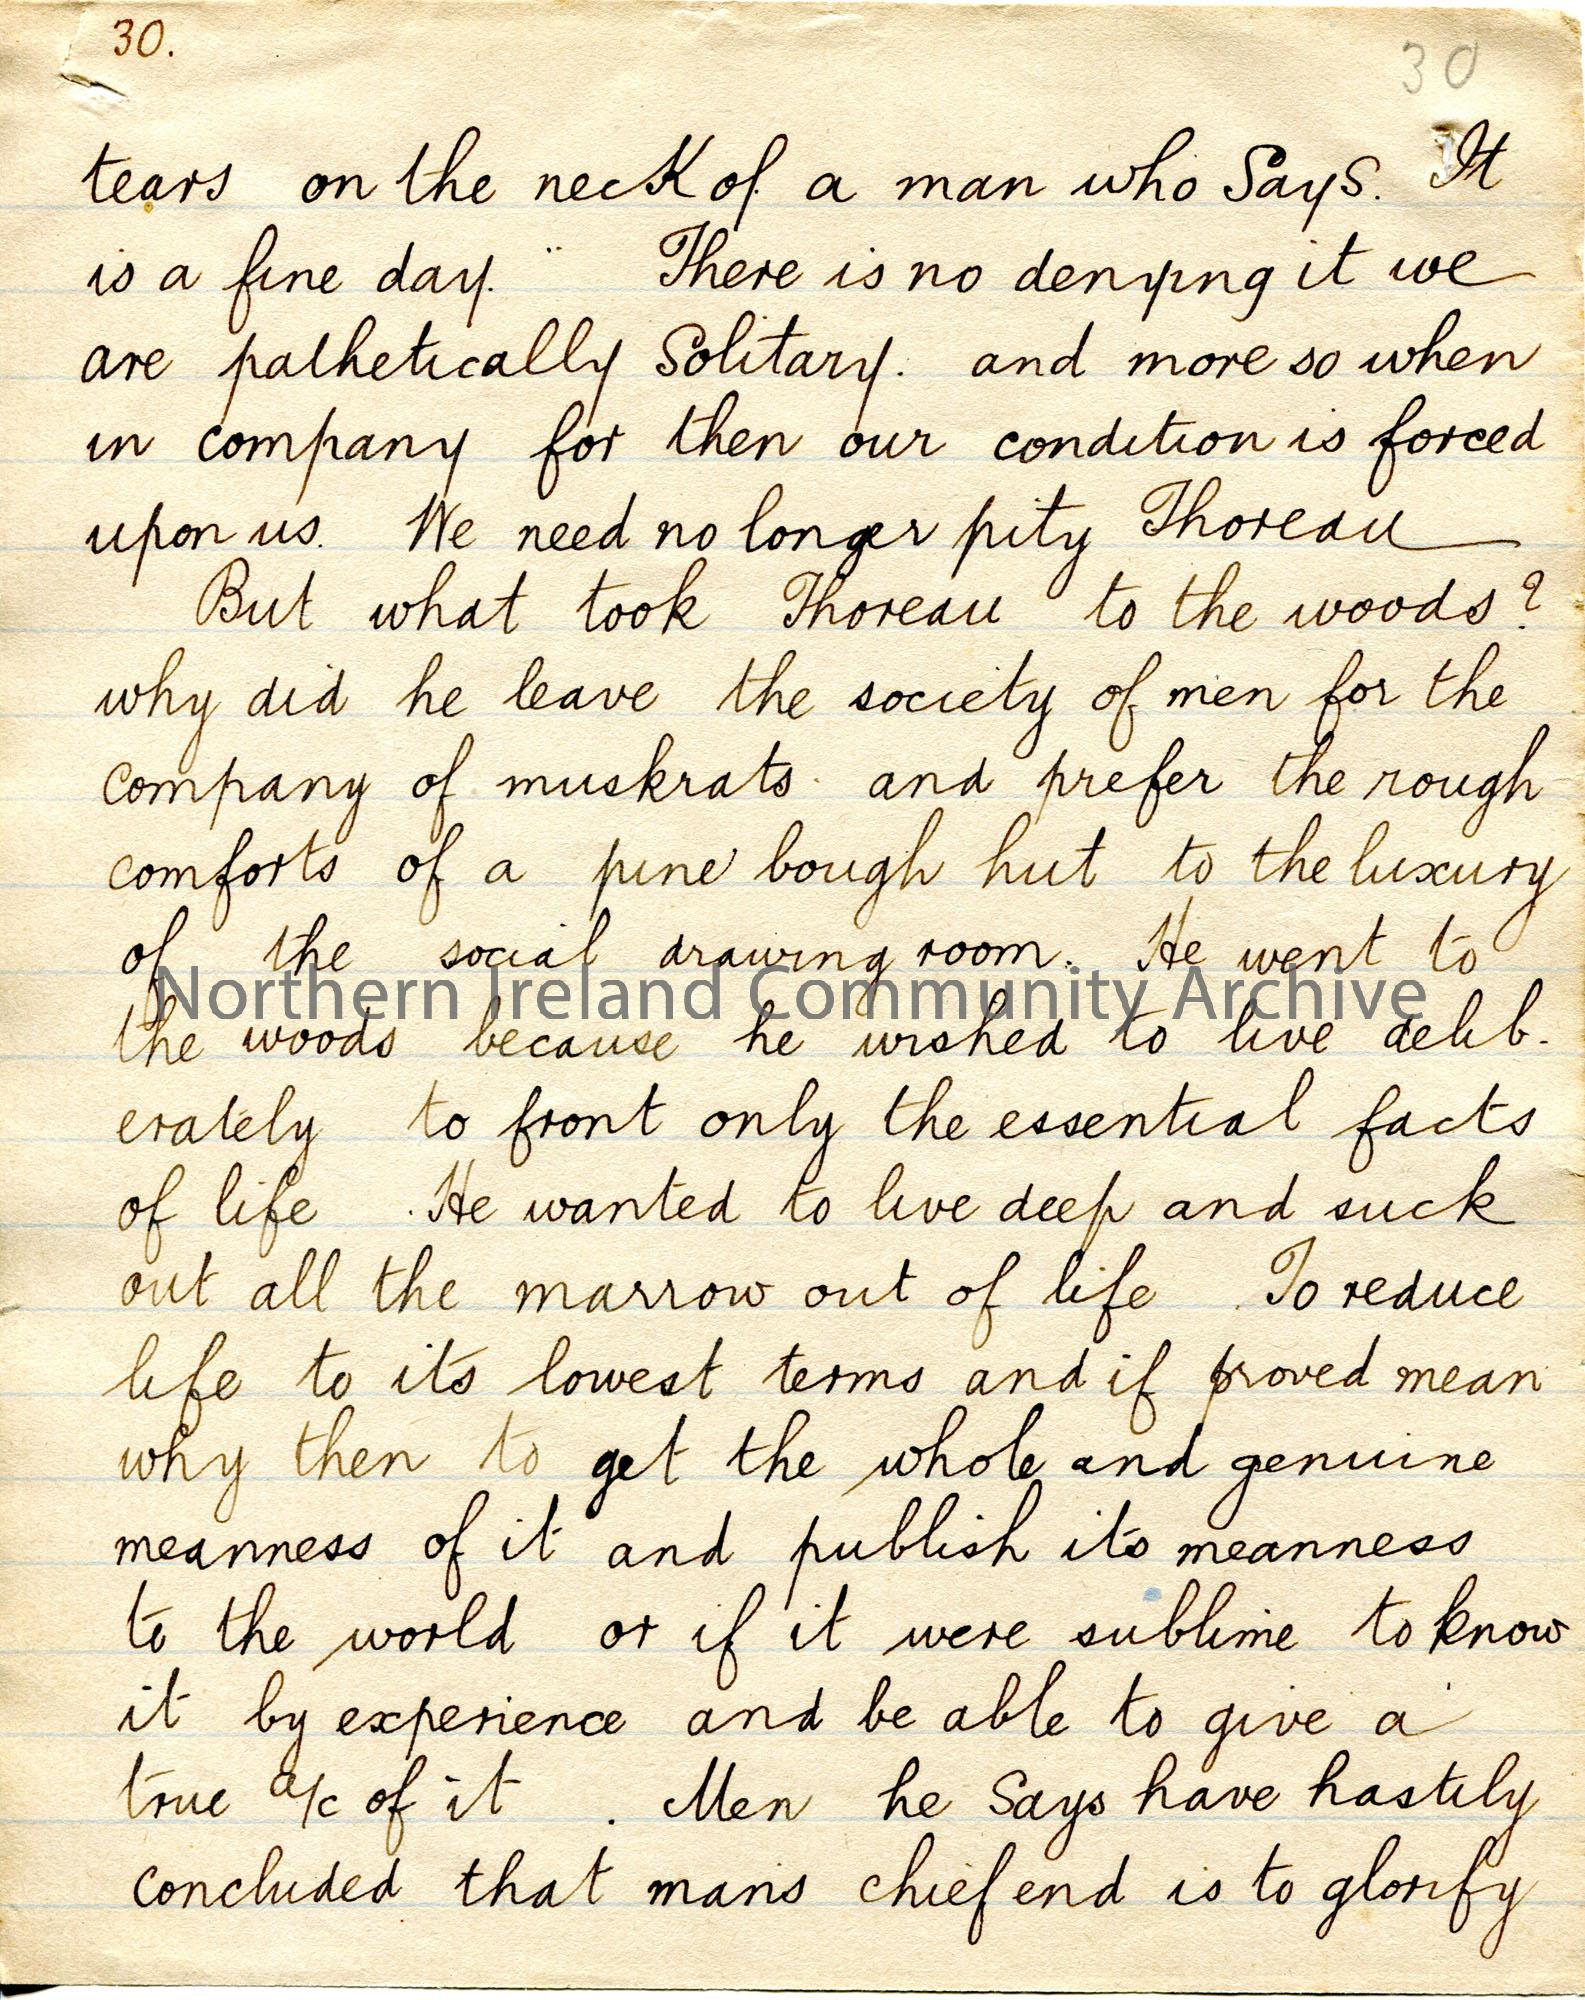 30.
30
tears on the neck of a man who Says. It
is a fine day." There is no denying it we
are pathetically Solitary. and more so when
in company for then our condition is forced
upon us. We need no longer pity Thoreau
But what took Thoreau to the woods?
why did he leave the society of men for the
company of muskrats. and prefer the rough
comforts of a pine bough hut to the luxury
of the social drawing room. He went to
Northern Ireland Community Archive
the woods because he wished to live delib-
erately to front only the essential facts
of life . He wanted to live deep and suck
out all the marrow out of life . To reduce
life to it's lowest terms and if proved mean
why then to get the whole and genuine
meanness of it and publish its meanness
to the world or if it were sublime to know
it by experience and be able to give a
true a/c of it . Men he Says have hastily
concluded that mans chief end is to glorify